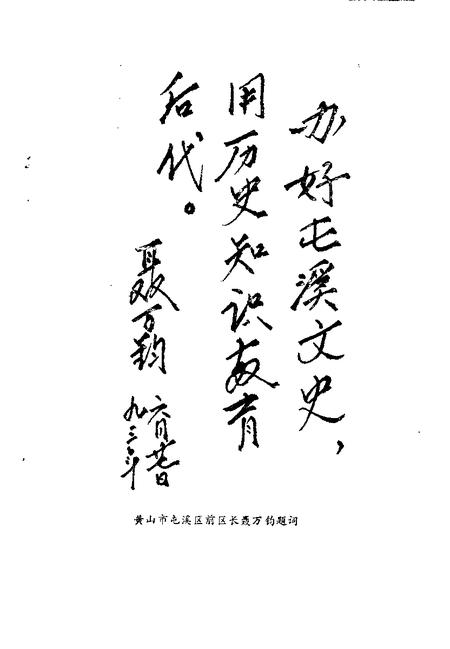 办好屯溪文史，
用历史知识教育
后代。
聂万钧
九三年
六月廿日
黄山市屯溪区前区长聂万钧题词